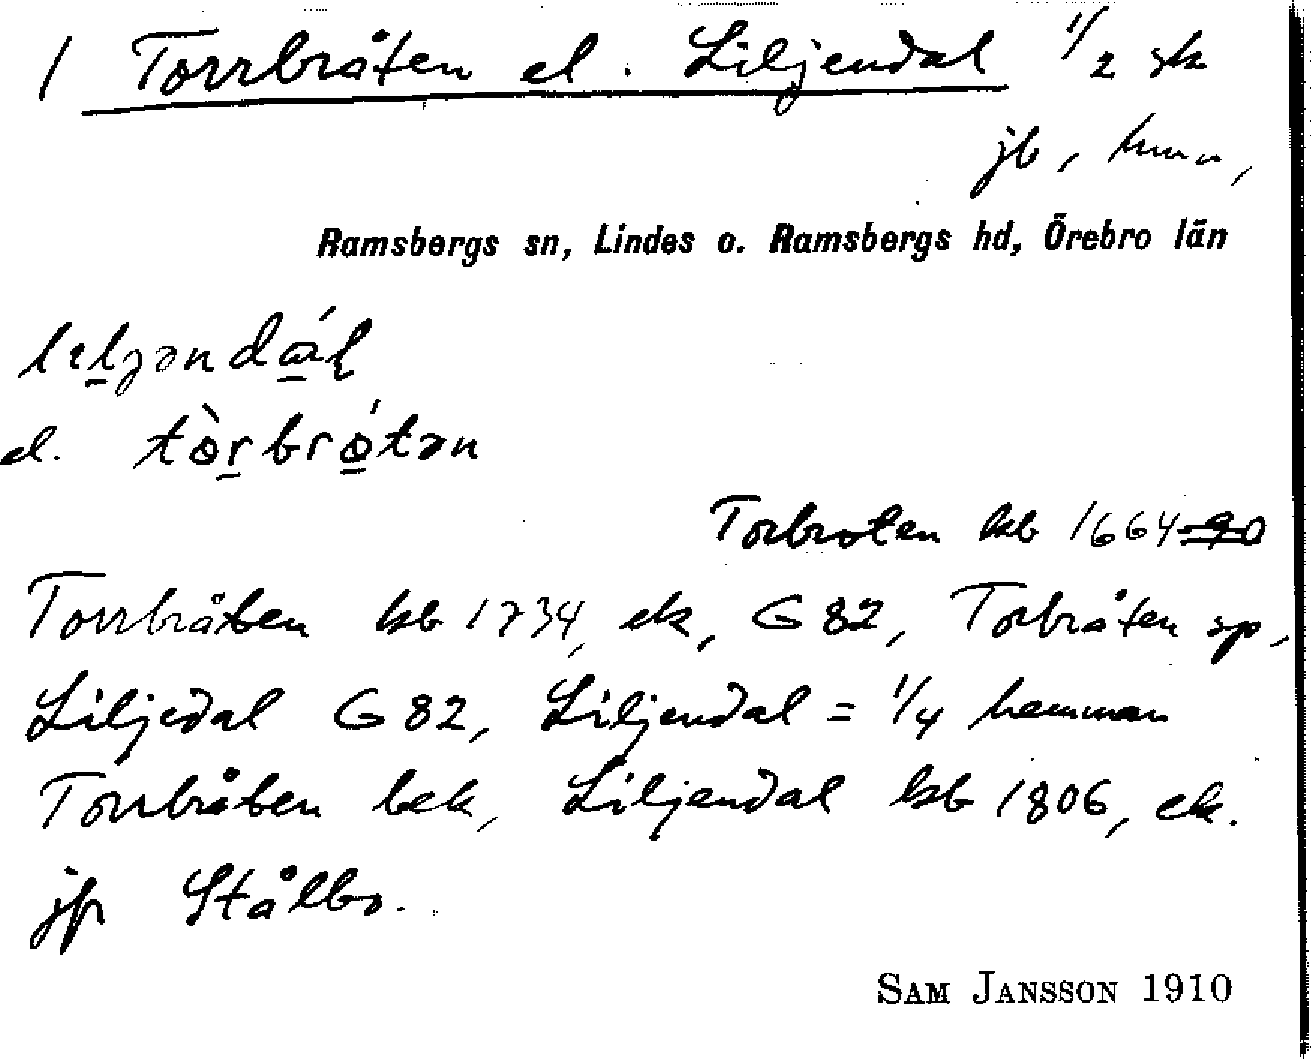 1 Torrbråten el. Liljendal 1/2 sk
jb, hmn,
Ramsbergs sn, Lindes o. Ramsbergs hd, Örebro län
lıljəndál
el. tòrbrótən
Torbroten kb 1664-90
Torrbråten kb 1734, ek, G 82, Torbråten sp,
Liljedal G 82, Liljendal = 1/4 hemman
Torrbråten bek, Liljendal kb 1806, ek.
jfr Stålbo.
SAM JANSSON 1910